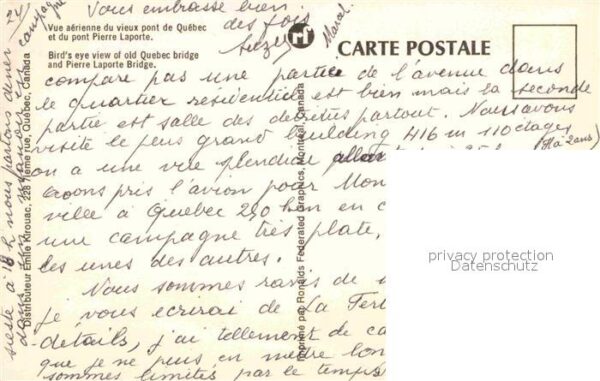 Vous embrasse bien
des fois
Suzy
Marcel
Vue aérienne du vieux pont de Québec
et du pont Pierre Laporte.
Bird's eye view of old Quebec bridge
and Pierre Laporte Bridge.
CARTE POSTALE
compare pas une partie de l'avenue dans
le quartier résidentiel est bien mais la seconde
partie est salle des détritus partout. Nous avons
visité le plus grand building 416 m 110 étages
on a une vue splendide
(il y a 2 ans)
avons pris l'avion pour Mon
ville à Québec 250 km en c
une campagne très plate,
les unes des autres.
Nous sommes ravis de
je vous écrirai de La Fer
détails, j'ai tellement de
que je ne peux en mettre
sommes limités par le temps
sieste à 18 h nous partons diner
dans
campagne
Distributeur Emile Kirouac, 228 11ème rue, Québec, Canada
Imprimé par Ronalds Federated Graphics, Montréal, Canada
privacy protection
Datenschutz